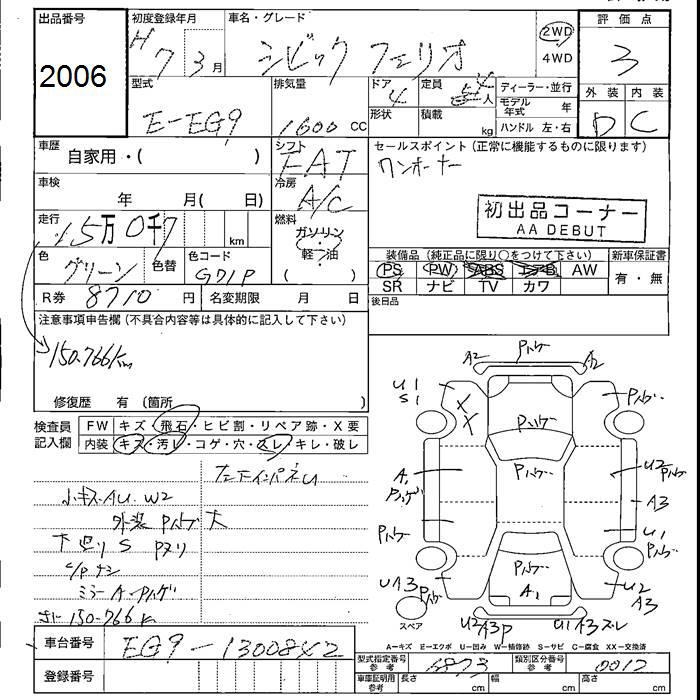 出品番号 初度登録年月 車名・グレード 2WD 評価点
2006 H 7 3月 シビック フェリオ 4WD 3
型式 排気量 ドア 定員 ディーラー・並行 外装 内装
E-EG9 1600cc 4 人 モデル年式 年 D C
形状 積載 kg ハンドル 左・右
車歴 シフト セールスポイント (正常に機能するものに限ります)
自家用・( ) FAT ワンオーナー
車検 冷房
年 月( 日) A/C 初出品コーナー
走行 燃料 AA DEBUT
15万0千7 km ガソリン
色 色替 色コード 軽油 装備品 (純正品に限り○をつけて下さい) 新車保証書
グリーン G71P ( ) PS RW ABS エアB AW 有・無
R券 8710円 名変期限 月 日 SR ナビ TV カワ
後日品
注意事項申告欄 (不具合内容等は具体的に記入して下さい)
150.766km
修復歴 有 (箇所 )
A2 Pハゲ A2
U1 S1 Pハゲ
XX Pハゲ
検査員記入欄 FW キズ・飛石・ヒビ割・リペア跡・X要
内装 キズ・汚レ・コゲ・穴・スレ・キレ・破レ
Pハゲ
A1 Pハゲ U2 Pハゲ
小キズAU.W2 A3
外装 Pハゲ 大
Pハゲ U1 Pハゲ
下廻り S Pヌリ
Pハゲ
ミラーA.Pハゲ UA3 Pハゲ A1 U2 A3
150.766k スペア U2A3P U1A3スレ
車台番号 EG9-1300842
A=キズ E=エクボ U=凹み W=補修跡 S=サビ C=腐食 XX=交換済
型式指定番号 参考 6873 類別区分番号 参考 0017
登録番号 車庫証明用 参考 長さ cm 幅 cm 高さ cm